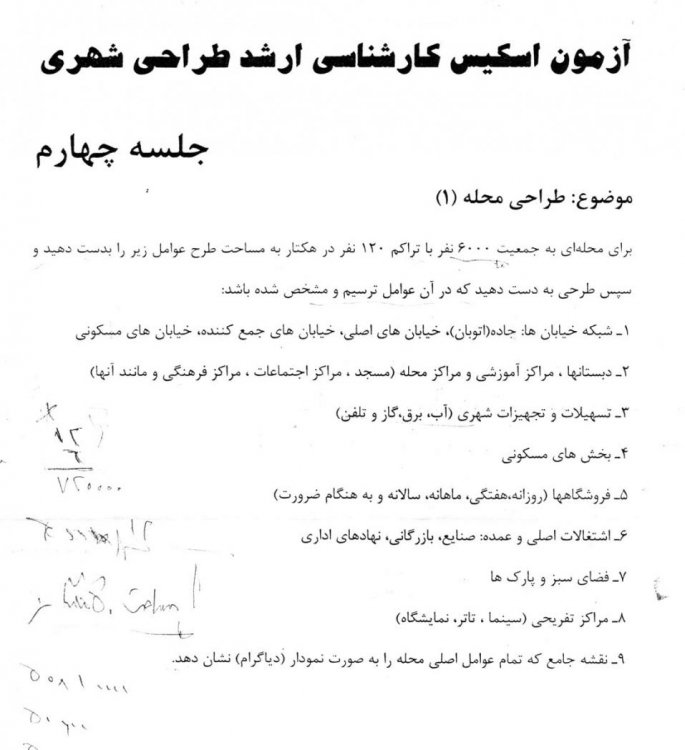 آزمون اسکیس کارشناسی ارشد طراحی شهری
جلسه چهارم
موضوع: طراحی محله (۱)
برای محله‌ای به جمعیت ۶۰۰۰ نفر با تراکم ۱۲۰ نفر در هکتار به مساحت طرح عوامل زیر را بدست دهید و
سپس طرحی به دست دهید که در آن عوامل ترسیم و مشخص شده باشد:
۱ـ شبکه خیابان ها: جاده(اتوبان)، خیابان های اصلی، خیابان های جمع کننده، خیابان های مسکونی
۲ـ دبستانها ، مراکز آموزشی و مراکز محله (مسجد ، مراکز اجتماعات ، مراکز فرهنگی و مانند آنها)
۳ـ تسهیلات و تجهیزات شهری (آب، برق،گاز و تلفن)
۱۲
۶
۷۲۰۰۰۰
۴ـ بخش های مسکونی
۵ـ فروشگاهها (روزانه،هفتگی، ماهانه، سالانه و به هنگام ضرورت)
۶ـ اشتغالات اصلی و عمده: صنایع، بازرگانی، نهادهای اداری
۷ـ فضای سبز و پارک ها
۸ـ مراکز تفریحی (سینما ، تاتر، نمایشگاه)
۹ـ نقشه جامع که تمام عوامل اصلی محله را به صورت نمودار (دیاگرام) نشان دهد.